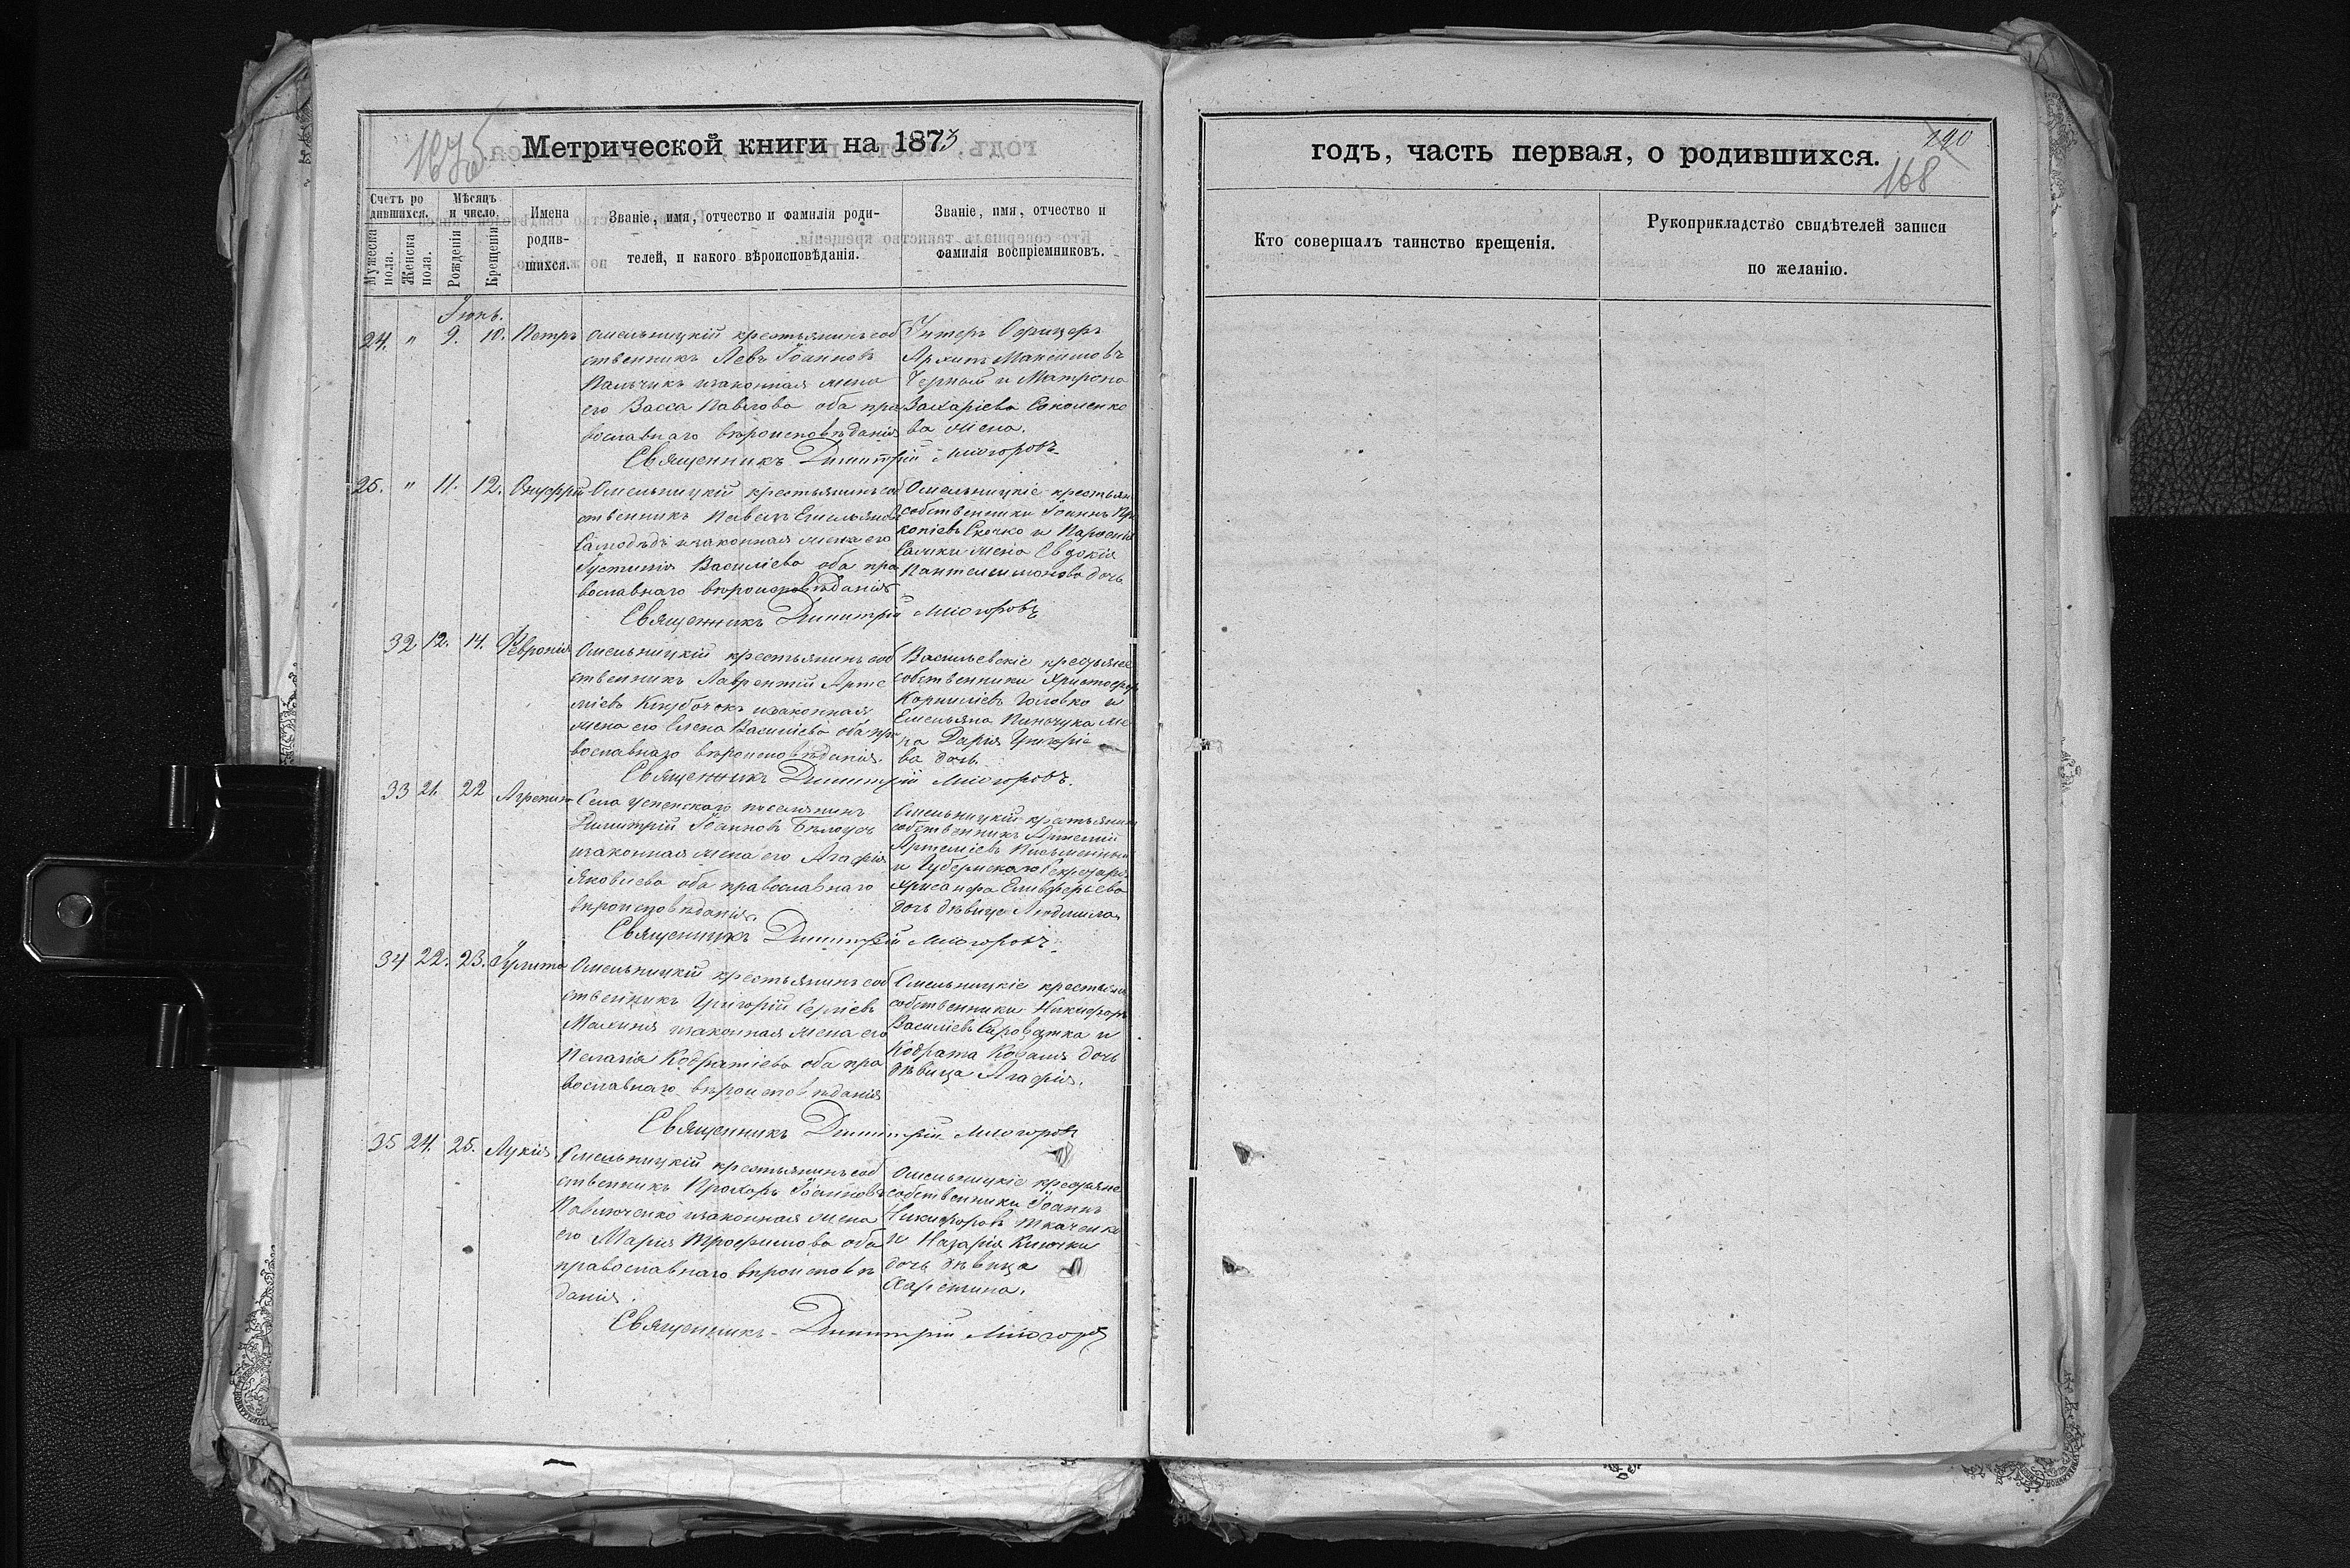 Метрической книги на 1873
годъ, часть первая, о родившихся.
240
168
Счетъ ро
дившихся.
Мужеска
пола.
Женска
пола.
Мѣсяцъ
и число.
Рожденія
Крещенія
Имена
родив-
шихся.
Званіе, имя, отчество и фамилія роди-
телей, и какого вѣроисповѣданія.
Званіе, имя, отчество и
фамилія воспріемниковъ.
Кто совершалъ таинство крещенія.
Рукоприкладство свидѣтелей записи
по желанію.
24. " 9. 10. Петръ
Омельницкій крестьянинъ соб
ственникъ Левъ Іоанновъ
Пальчикъ изаконная жена
его Васса Павлова оба пра
вославнаго вѣроисповѣданія
Унтеръ Офицеръ
Архипъ Максимовъ
Черный и Матрона
Захаріева Соколенко
ва жена.
Священникъ Димитрій Миогоровъ
25. " 11. 12. Онуфрій
Омельницкій крестьянинъ соб
ственникъ Павелъ Емельяновъ
Самодѣдъ изаконная жена его
Іустинія Василіева оба пра
вославнаго вѣроисповѣданія
Омельницкіе крестьян
собственники Іоаннъ Про
копіевъ Скочко и Парфенія
жена Евдокія
Пантелеимонова дочь
Священникъ Димитрій Миогоровъ
32 12. 14. Февронія
Омельницкій крестьянинъ соб
ственникъ Лаврентій Арте
міевъ Клубочокъ изаконная
жена его Елена Василіева оба пра
вославнаго вѣроисповѣданія.
Васильевскіе крестьяне
собственники Христофоръ
Корниліевъ Головко и
Емельяна Пинчука же
на Дарія Григоріе
ва дочь.
Священникъ Димитрій Миогоровъ.
33 21. 22 Агрепин
Села Успенского поселянинъ
Димитрій Іоанновъ Бѣлоусъ
изаконная жена его Агафія
Яковлева оба православнаго
вѣроисповѣданія.
Омельницкій крестьянин
собственникъ Артемій
Артеміевъ Письменный
и Губернскаго Секретаря
Хрисанфа Елифферьева
дочь дѣвица Людмила
Священникъ Димитрій Миогоровъ.
34 22. 23. Іулита
Омельницкій крестьянинъ соб
ственникъ Григорій Сергіевъ
Махиня изаконная жена его
Пелагія Кодратіева оба пра
вославнаго вѣроисповѣданія
Омельницкіе крестьян
собственники Никифоръ
Василіевъ Сироватка и
Кодрата Коваля дочь
дѣвица Агафія.
Священникъ Димитрій Миогоровъ
35 24. 25. Лукія
Омельницкій крестьянинъ соб
ственникъ Прохоръ Іоанновъ
Павлюченко изаконная жена
его Марія Трофимова оба
православнаго вѣроисповѣ
данія.
Омельницкіе крестьяне
собственники Іоаннъ
Никифоровъ Ткаченко
и Назарія Клочки
дочь дѣвица
Харетина.
Священникъ Димитрій Миогоровъ